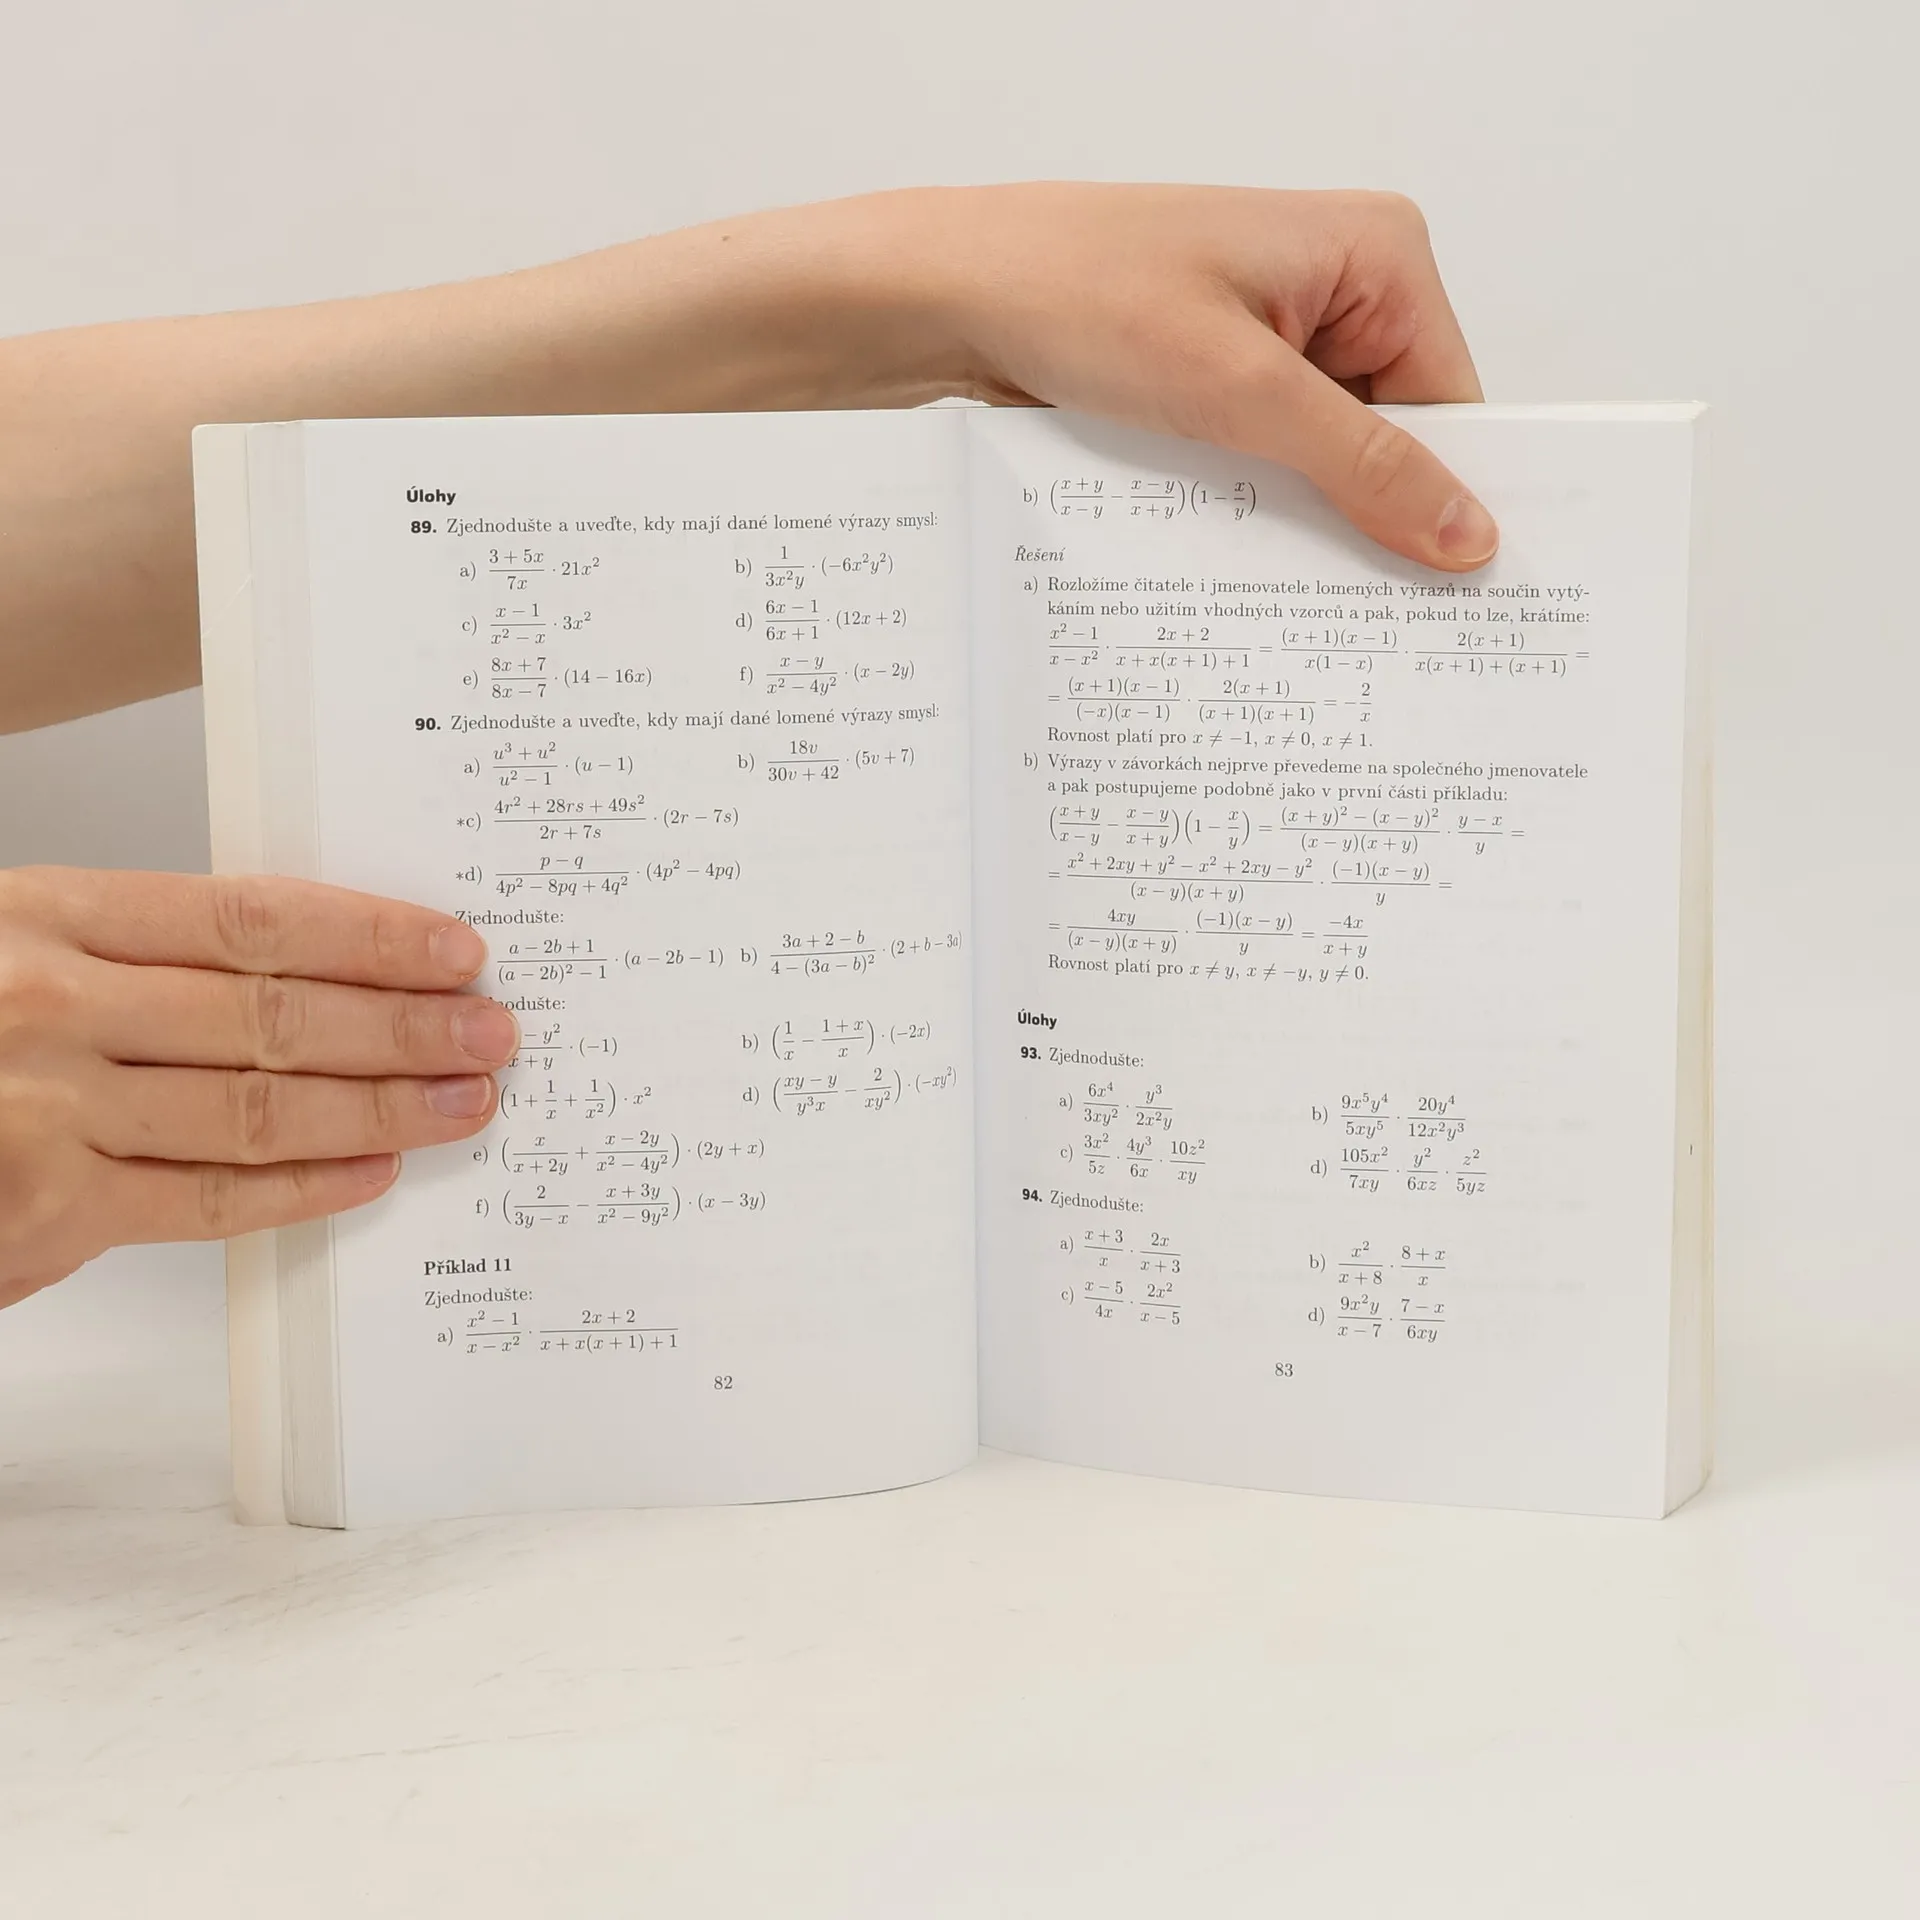 Úlohy
89. Zjednodušte a uveďte, kdy mají dané lomené výrazy smysl:
a) (3 + 5x)/(7x) · 21x² b) 1/(3x²y) · (−6x²y²)
c) (x − 1)/(x² − x) · 3x² d) (6x − 1)/(6x + 1) · (12x + 2)
e) (8x + 7)/(8x − 7) · (14 − 16x) f) (x − y)/(x² − 4y²) · (x − 2y)
90. Zjednodušte a uveďte, kdy mají dané lomené výrazy smysl:
a) (u³ + u²)/(u² − 1) · (u − 1) b) 18v/(30v + 42) · (5v + 7)
*c) (4r² + 28rs + 49s²)/(2r + 7s) · (2r − 7s)
*d) (p − q)/(4p² − 8pq + 4q²) · (4p² − 4pq)
Zjednodušte:
(a − 2b + 1)/((a − 2b)² − 1) · (a − 2b − 1) b) (3a + 2 − b)/(4 − (3a − b)²) · (2 + b − 3a)
odušte:
− y²/x + y · (−1) b) (1/x − (1 + x)/x) · (−2x)
(1 + 1/x + 1/x²) · x² d) ((xy − y)/(y³x) − 2/(xy²)) · (−xy²)
e) (x/(x + 2y) + (x − 2y)/(x² − 4y²)) · (2y + x)
f) (2/(3y − x) − (x + 3y)/(x² − 9y²)) · (x − 3y)
Příklad 11
Zjednodušte:
a) (x² − 1)/(x − x²) · (2x + 2)/(x + x(x + 1) + 1)
82
b) ((x + y)/(x − y) − (x − y)/(x + y))(1 − x/y)
Řešení
a) Rozložíme čitatele i jmenovatele lomených výrazů na součin vytý-
káním nebo užitím vhodných vzorců a pak, pokud to lze, krátíme:
(x² − 1)/(x − x²) · (2x + 2)/(x + x(x + 1) + 1) = ((x + 1)(x − 1))/(x(1 − x)) · (2(x + 1))/(x(x + 1) + (x + 1)) =
= ((x + 1)(x − 1))/((−x)(x − 1)) · (2(x + 1))/((x + 1)(x + 1)) = −2/x
Rovnost platí pro x ≠ −1, x ≠ 0, x ≠ 1.
b) Výrazy v závorkách nejprve převedeme na společného jmenovatele
a pak postupujeme podobně jako v první části příkladu:
((x + y)/(x − y) − (x − y)/(x + y))(1 − x/y) = ((x + y)² − (x − y)²)/((x − y)(x + y)) · (y − x)/y =
= (x² + 2xy + y² − x² + 2xy − y²)/((x − y)(x + y)) · ((−1)(x − y))/y =
= 4xy/((x − y)(x + y)) · ((−1)(x − y))/y = −4x/(x + y)
Rovnost platí pro x ≠ y, x ≠ −y, y ≠ 0.
Úlohy
93. Zjednodušte:
a) 6x⁴/(3xy²) · y³/(2x²y) b) 9x⁵y⁴/(5xy⁵) · 20y⁴/(12x²y³)
c) 3x²/(5z) · 4y³/(6x) · 10z²/(xy) d) 105x²/(7xy) · y²/(6xz) · z²/(5yz)
94. Zjednodušte:
a) (x + 3)/x · 2x/(x + 3) b) x²/(x + 8) · (8 + x)/x
c) (x − 5)/(4x) · 2x²/(x − 5) d) 9x²y/(x − 7) · (7 − x)/(6xy)
83